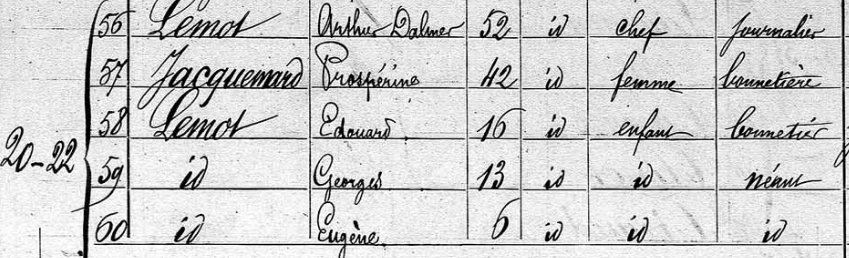 56 Lemot Arthur Dalmer 52 id chef journalier
57 Jacquemard Prospérine 42 id femme bonnetière
58 Lemot Edouard 16 id enfant bonnetier
20-22 59 id Georges 13 id id néant
60 id Eugène 6 id id id